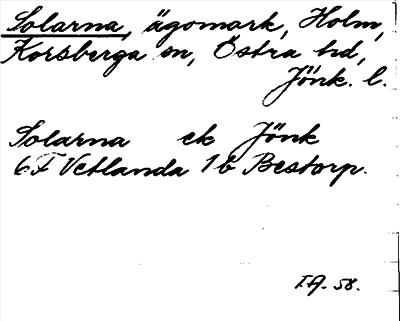 Solarna, ägomark, Holm,
Korsberga sn, Östra hd,
Jönk. l.
Solarna ek Jönk
6F Vetlanda 1b Bestorp.
I.A. 58.